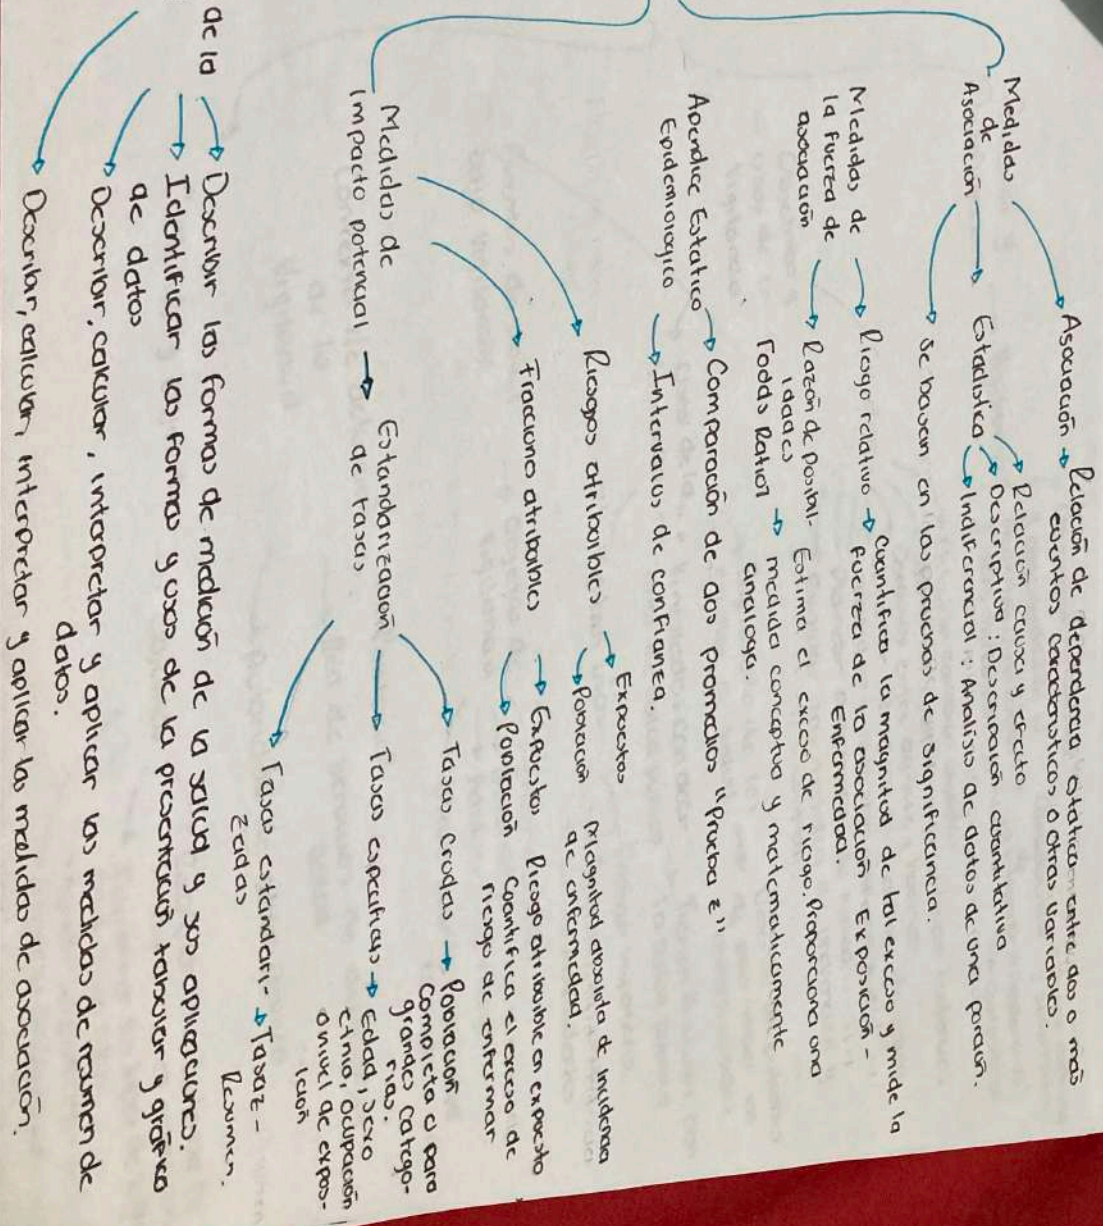 Medidas
de
Asociación
Asociación → Relación de dependencia estática entre dos o más
eventos característicos o otras variables.
Estadística
Relación causa y efecto
Descriptiva: Descripción cuantitativa
Indiferencial: Analiso de datos de una porción.
Se basan en las pruebas de significancia.
Medidas de
la fuerza de
asociación
Riesgo relativo → cuantifica la magnitud de tal exceso y mide la
fuerza de la asociación Exposición -
Enfermedad.
Razón de posibil-
idades
[odds Ratio]
Estima el exceso de riesgo. Proporciona una
→ medida conceptua y matematicamente
analoga.
Apendice Estatico
Epidemiologico
Comparación de dos promedios "Prueba z"
Intervalos de confianza.
Medidas de
Impacto potencial
Riesgos atribuibles
Expuestos
Población
Magnitud absoluta de incidencia
de enfermedad.
Fracciono atribuibles
Expuestos Riesgo atribuible en expuesto
Población Cuantifica el exceso de
riesgo de enfermar
→ Estandarización
de tasas
Tasas crudas → Población
completa o para
grandes catego-
rias.
Tasas especificas → Edad, sexo
etnia, ocupación
o nivel de expos-
ición
Tasas estandari-
zadas
→ Tasaz -
Resumen.
de la
Describir las formas de medición de la salud y sus aplicaciones.
Identificar las formas y usos de la presentación tabular y gráfico
de datos
Describir, calcular, interpretar y aplicar las medidas de resumen de
datos.
Describir, calcular, interpretar y aplicar las medidas de asociación.